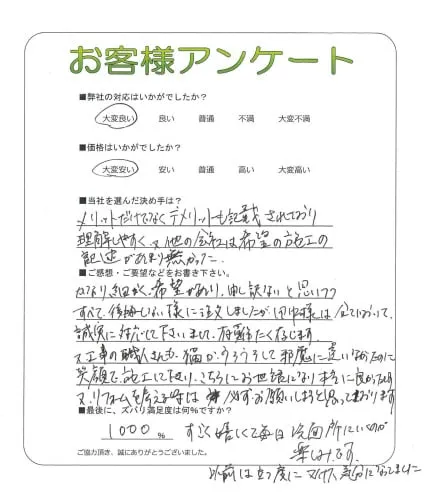 お客様アンケート
■弊社の対応はいかがでしたか？
大変良い 良い 普通 不満 大変不満
■価格はいかがでしたか？
大変安い 安い 普通 高い 大変高い
■当社を選んだ決め手は？
メリットだけでなくデメリットも記載されており
理解しやすく、又他の会社は希望の施工の
記述があまり無かった。
■ご感想・ご要望などをお書き下さい。
かなり細かく希望があり、申し訳ないと思いつつ
すべて、後悔しない様に注文しましたが 様は全てにおいて、
誠実に対応して下さいまして、有難たく存じます。
又工事の職人さんも、猫がうろうろして邪魔に違いなかったのに
笑顔で施工して下さり、こちらにお世話になり本当に良かったです
又、リフォームを考える時は 必ずお願いしようと思っております
■最後に、ズバリ満足度は何％ですか？
1000 ％ すごく嬉しくて毎日洗面所にいくのが
楽しみです。
ご協力頂き、誠にありがとうございました。
以前は立つ度にマイナス気分になってました